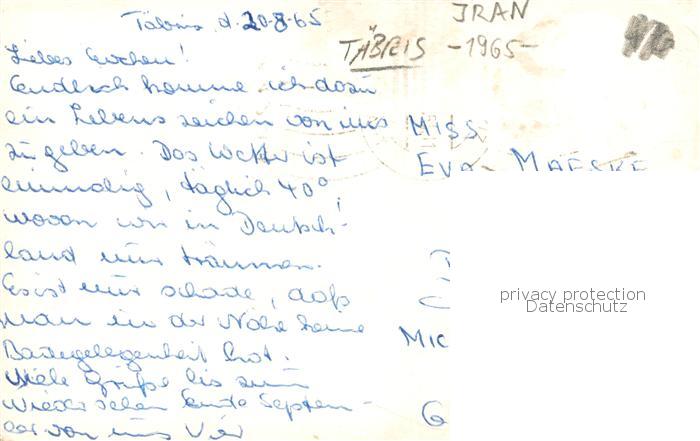 Täbris d. 20-8-65
IRAN
TÄBRIS -1965-
Liebes Evchen!
Endlich komme ich dazu
ein Lebenszeichen von uns
zu geben. Das Wetter ist
einmalig, täglich 40°,
wovon wir in Deutsch-
land nur träumen.
Es ist nur schade, daß
man in der Nähe keine
Badegelegenheit hat.
Viele Grüße bis zum
Wiedersehen Ende Septem-
ber von uns Vier
MISS
EVA MAESKE
MIC
G
privacy protection
Datenschutz